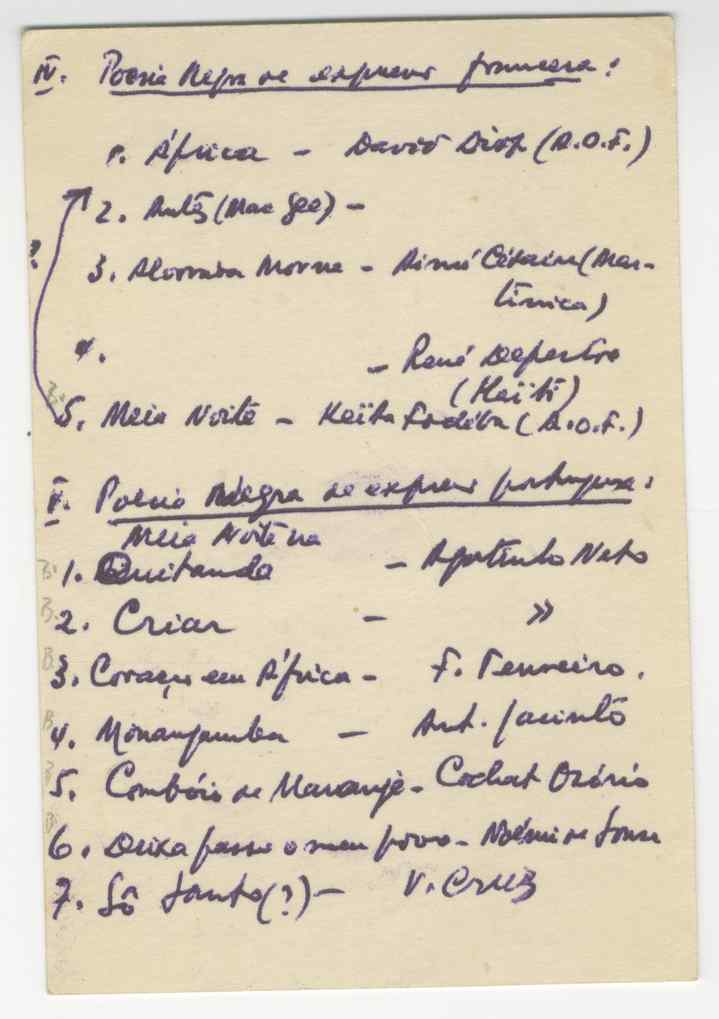 IV. Poesia Negra de expressão francesa:
1. África - David Diop (A.O.F.)
2. (Mac Gee) -
?
3. Morna - Aimé Césaire (Mar-
tinica)
4. - René Depestre
(Haïti)
B. 5. Meia Noite - Keïta Fodéba (A.O.F.)
V. Poesia Negra de expressão portuguesa:
Meia Noite na
B. 1. Quitanda - Agostinho Neto
B. 2. Criar - »
B. 3. Coração em África - F. Tenreiro.
B. 4. Monangamba - Ant. Jacinto
B. 5. Combóio de Malanje - Cochat Osório
B. 6. Deixa passar o meu povo - Noémia de Sousa
7. Sô Santo (?) - V. Cruz